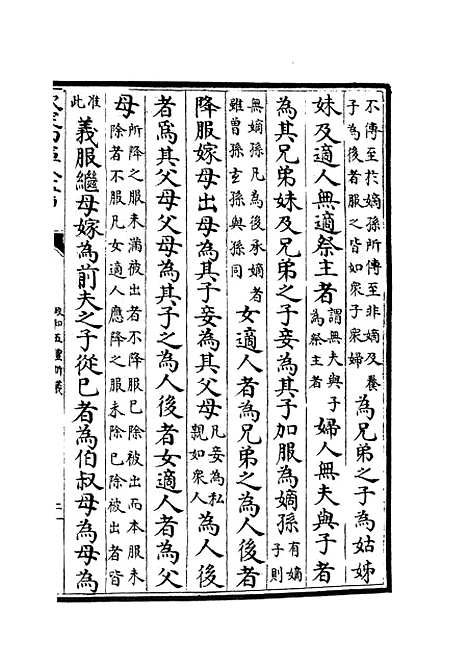 不傳至於嫡孫所傳至非嫡及養
子為後者服之皆如衆子衆婦
為兄弟之子為姑姊
妹及適人無適祭主者
謂無夫與子
為祭主者
婦人無夫與子者
為其兄弟妹及兄弟之子妾為其子加服為嫡孫
有嫡
子則
無嫡孫凡為後承嫡者
雖曾孫玄孫與孫同
女適人者為兄弟之為人後者
降服嫁母出母為其子妾為其父母
凡妾為私
親如衆人
為人後
者為其父母父母為其子之為人後者女適人者為父
母
所降之服未滿被出者不降服已除被出而本服未
除者不服凡女適人應降之服未除已除被出者皆
准
此
義服繼母嫁為前夫之子從已者為伯叔母為母為
政和五禮新儀